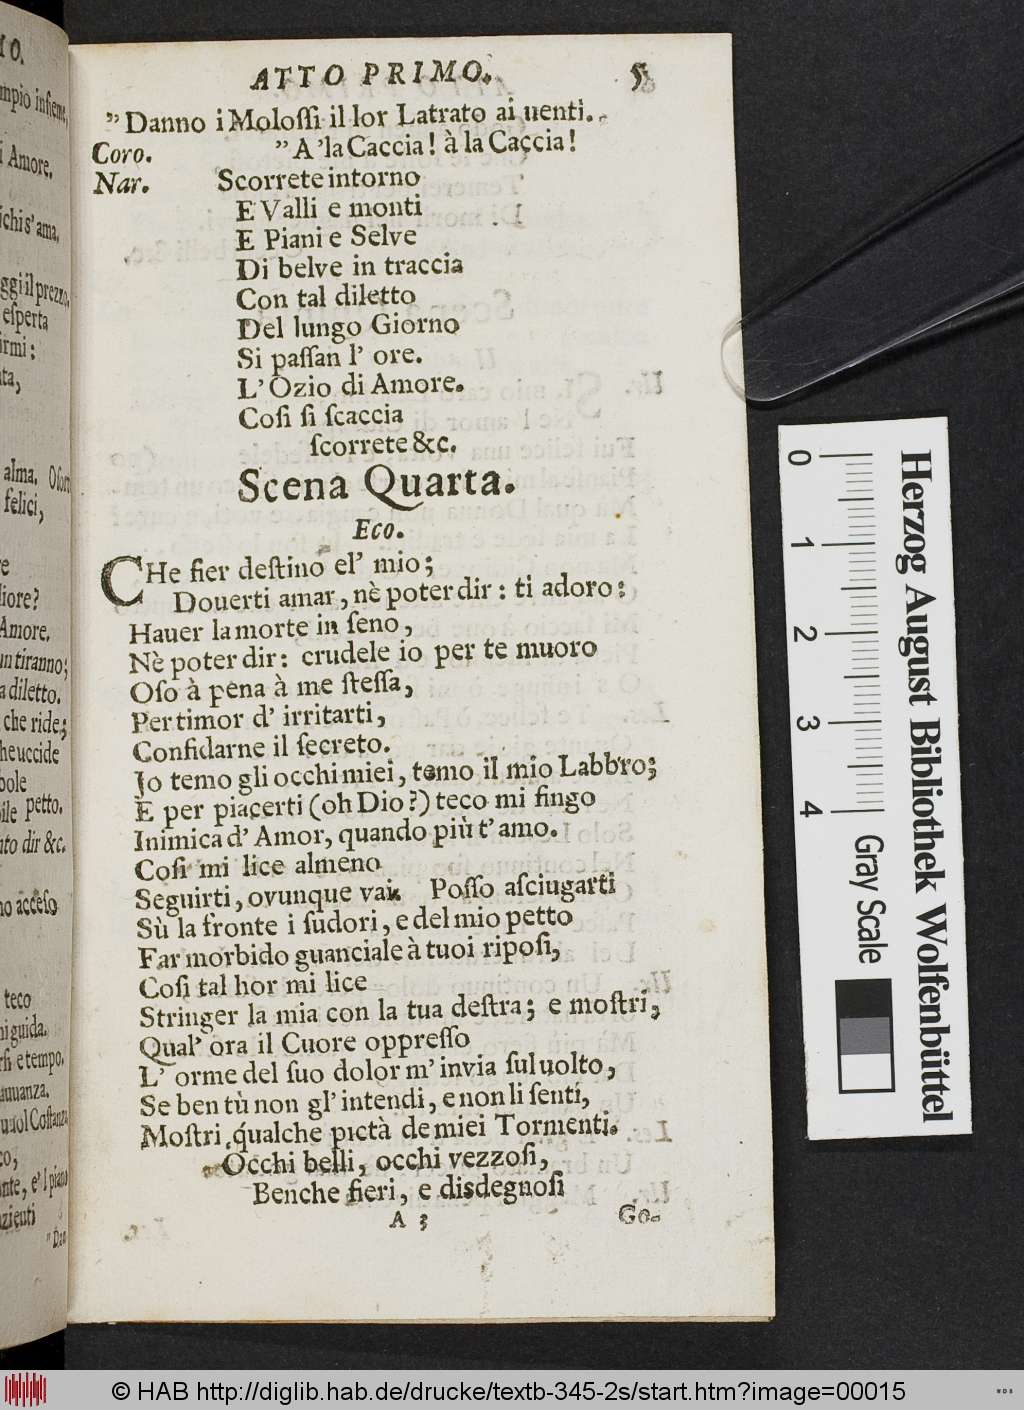 ATTO PRIMO. 5
" Danno i Molossi il lor Latrato ai uenti.
Coro. " A 'la Caccia! à la Caccia!
Nar. Scorrete intorno
E Valli e monti
E Piani e Selve
Di belve in traccia
Con tal diletto
Del lungo Giorno
Si paſſan l' ore.
L' Ozio di Amore.
Coſi ſi ſcaccia
ſcorrete &c.
Scena Quarta.
Eco.
CHe fier deſtino el' mio;
Douerti amar, nè poter dir: ti adoro:
Hauer la morte in ſeno,
Nè poter dir: crudele io per te muoro
Oſo à pena à me ſteſſa,
Per timor d' irritarti,
Confidarne il ſecreto.
Jo temo gli occhi miei, temo il mio Labbro;
E per piacerti (oh Dio?) teco mi fingo
Inimica d' Amor, quando più t' amo.
Coſi mi lice almeno
Seguirti, ovunque vai. Poſſo aſciugarti
Sù la fronte i ſudori, e del mio petto
Far morbido guanciale à tuoi ripoſi,
Coſi tal hor mi lice
Stringer la mia con la tua deſtra; e moſtri,
Qual' ora il Cuore oppreſſo
L' orme del ſuo dolor m' invia ſul uolto,
Se ben tù non gl' intendi, e non li ſenti,
Moſtri qualche pietà de miei Tormenti.
Occhi belli, occhi vezzoſi,
Benche fieri, e disdegnoſi
A 3 Go-
IO.
i Amore.
ichi s' ama.
ggi il prezzo,
eſperta
irmi:
ta,
alma.
felici,
liore?
Amore.
un tiranno;
a diletto.
che ride;
he uccide
petto.
to dir &c.
no acceſo
teco
ni guida.
e tempo.
ol Coſtanza
co,
nte, e' l piano
0
1
2
3
4
Herzog August Bibliothek Wolfenbüttel
Gray Scale
© HAB http://diglib.hab.de/drucke/textb-345-2s/start.htm?image=00015